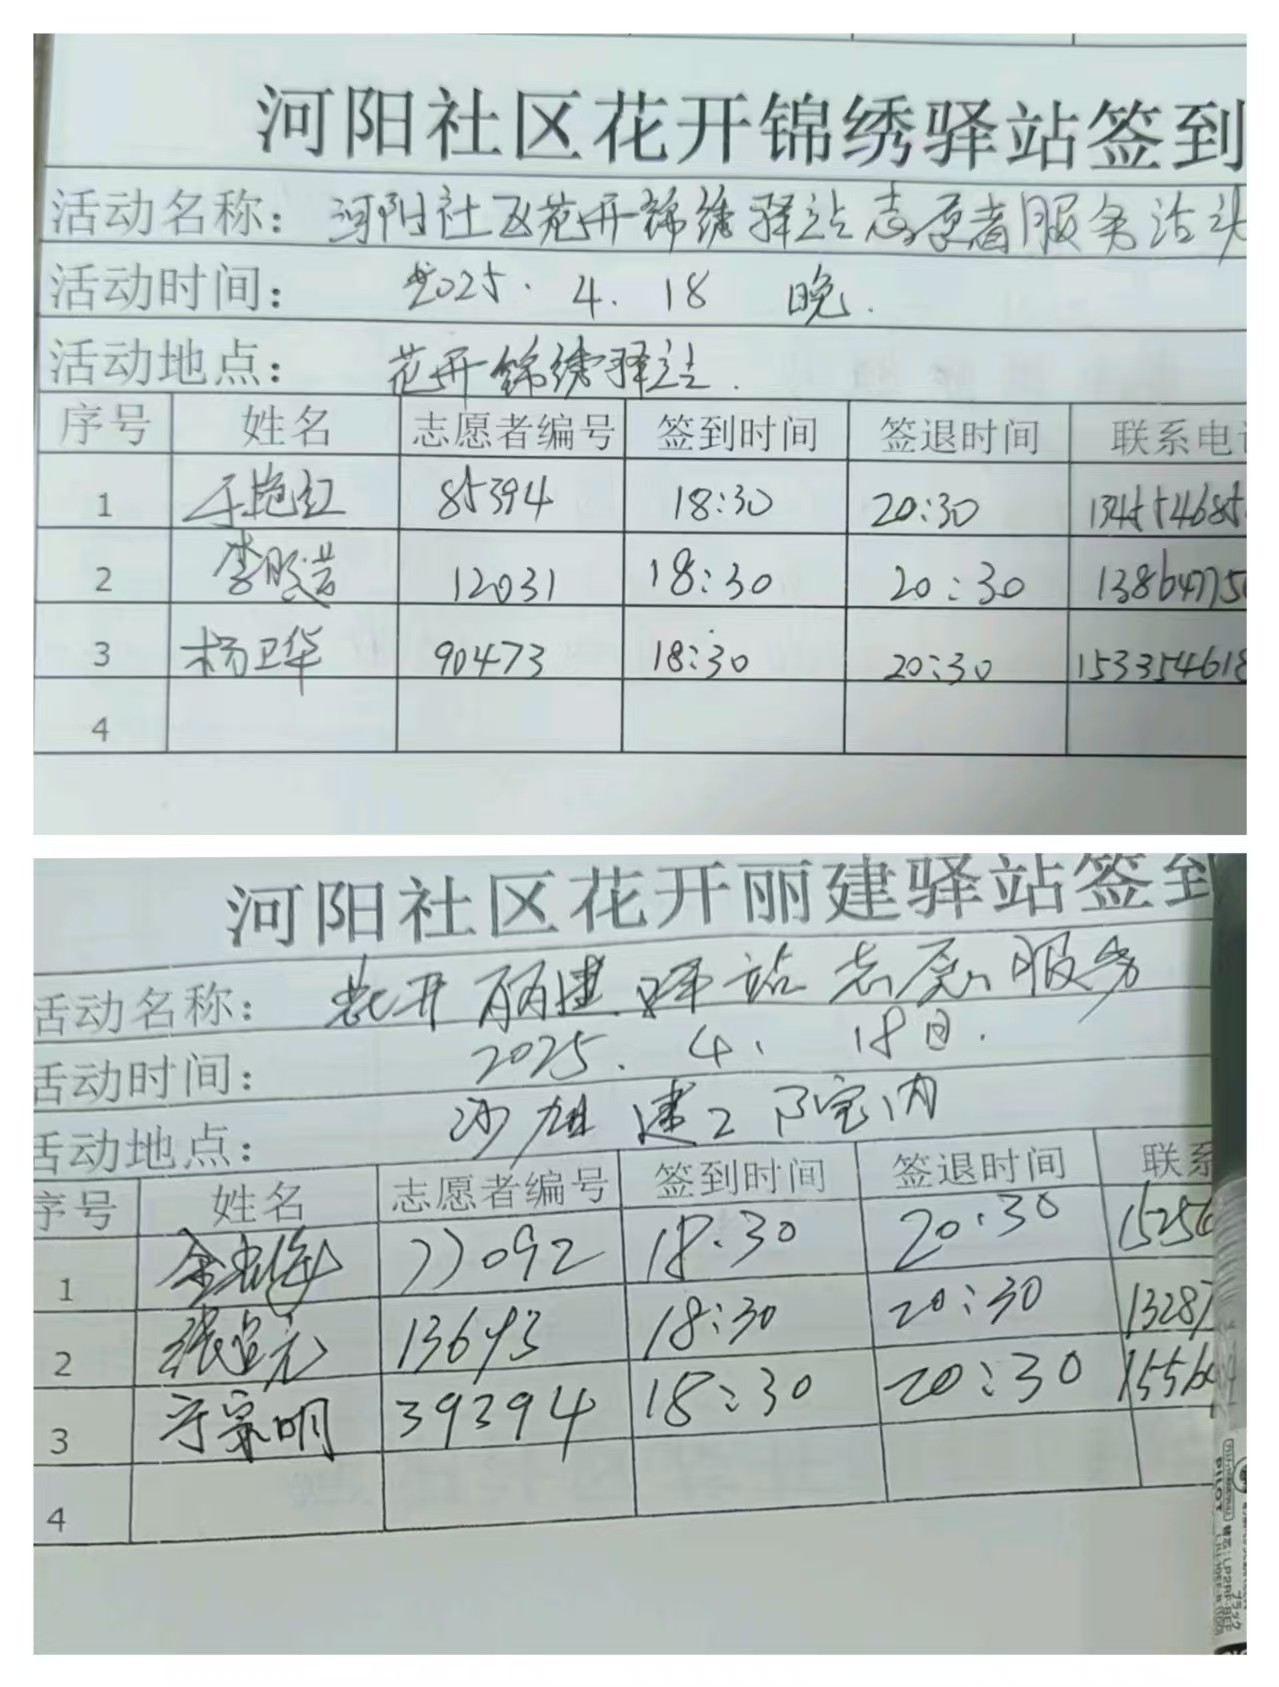 河阳社区花开锦绣驿站签到
活动名称：河阳社区花开锦绣驿站志愿者服务活动
活动时间：2025.4.18 晚.
活动地点：花开锦绣驿站.
序号 姓名 志愿者编号 签到时间 签退时间 联系电
1 于艳红 85394 18:30 20:30 134554685
2 李 12031 18:30 20:30 138647750
3 杨卫华 90473 18:30 20:30 153354618
4
河阳社区花开丽建驿站签到
活动名称：花开丽建驿站志愿服务
活动时间：2025.4.18日.
活动地点：院内
序号 姓名 志愿者编号 签到时间 签退时间 联系
1 77092 18:30 20:30 15256
2 张 18:30 20:30 13287
3 宗明 39394 18:30 20:30
4
PILOT